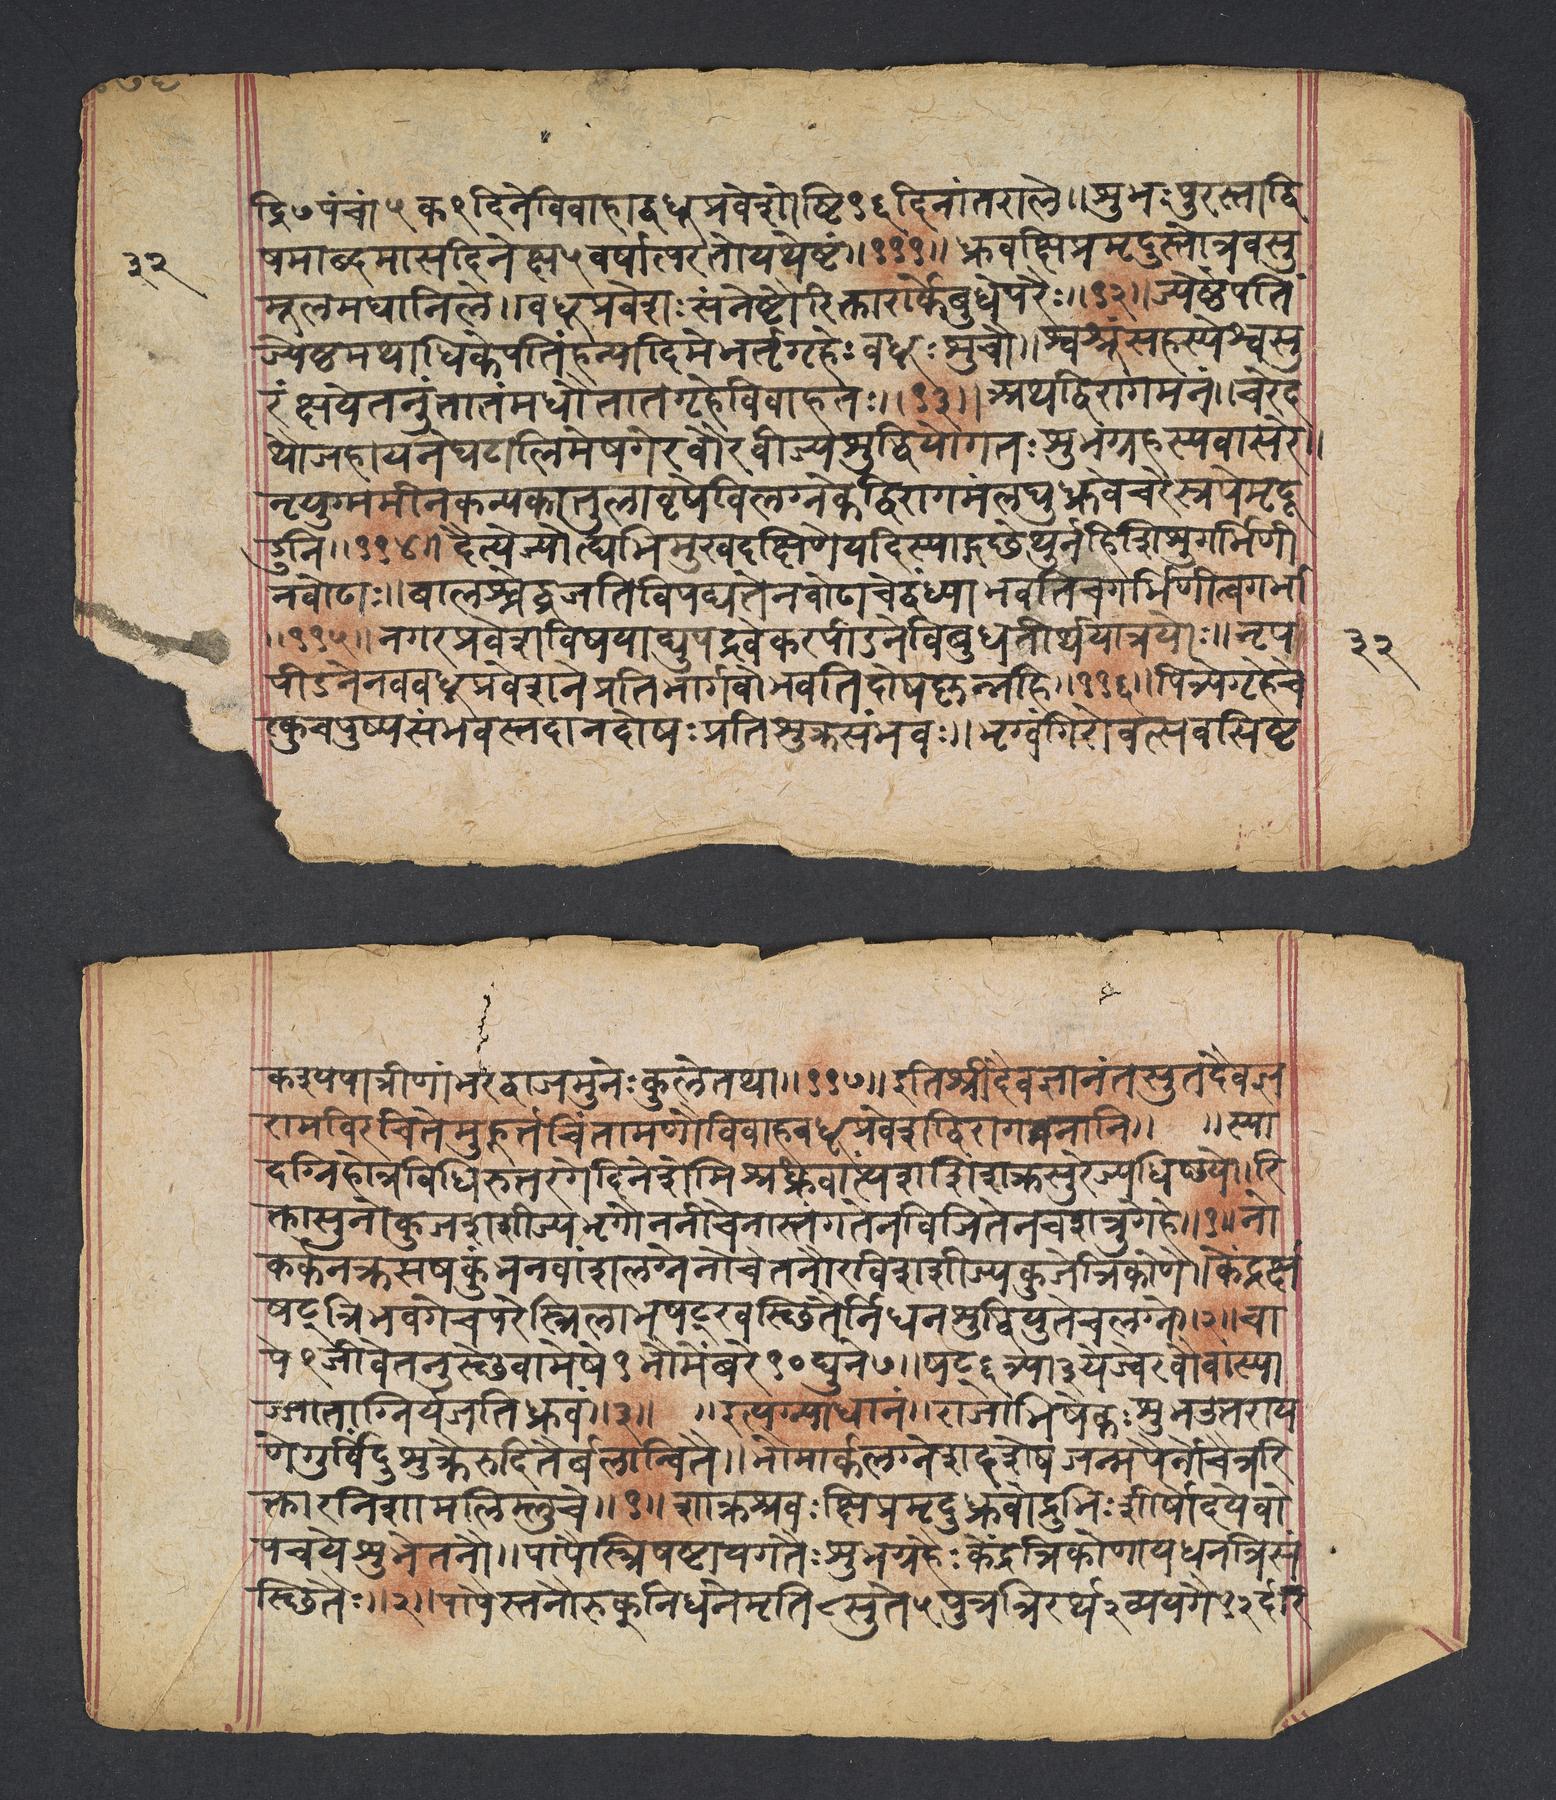 द्रि७पंचां५क९दिनेविवाहाद्वधूप्रवेशोष्टि१६दिनांतराले॥शुभःपुरस्ताद्वि
३२
षमाब्दमासदिनेक्ष५वर्षात्परतोयथेष्टं॥१११॥ध्रुवक्षिप्रमृदुस्रोत्रवसु
मूलमघानिले॥वधूप्रवेशःसंनेष्टोरिक्तारार्केबुधेपरैः॥१२॥ज्येष्ठेपतिं
ज्येष्ठमथाधिकेपतिंहंत्यादिमेभर्तृगृहेःवधूःशुचौ॥श्वश्रूंसहस्येश्वसु
रंक्षयेतनुंतातंमधौतातगृहेविवाहतः॥१३॥अथद्विरागमनं॥चेरेद
थौजहायनेघटालिमेषगेरवौरवीज्यशुद्धियोगतःशुभग्रहस्यवासरे॥
नृयुग्ममीनकन्यकातुलावृषेविलग्नेकेद्विरागमंलघुध्रुवेचरेस्त्रपेमृदू
डुनि॥११४॥दैत्येज्योत्द्यभिमुखदक्षिणेयदिस्याद्गछेयुर्नहिशिशुगर्भिणी
नवोढाः॥बालश्चेद्व्रजतिविपद्यतेनवोढाचेद्वंध्याभवतिचगर्भिणीत्वगर्भा
॥११५॥नगरप्रवेशविषयाद्युपद्रवेकरपीडनेविबुधतीर्थयात्रयोः॥नृप
३२
पीडनेनववधूप्रवेशनेप्रतिभार्गवोभवतिदोषकृन्नहि॥११६॥पित्र्येगृहेचे
त्कुचपुष्पसंभवस्तदानदोषःप्रतिशुक्रसंभवः॥भृग्वंगिरोवत्सवसिष्ट
कश्यपात्रीणांभरद्वाजमुनेःकुलेतथा॥११७॥इतिश्रीदैवज्ञानंतसुतदैवज्ञ
रामविरचितेमुहूर्तचिंतामणौविवाहवधूप्रवेशद्विरागमनानि॥ ॥स्या
दग्निहोत्रविधिरुत्तरगेदिनेशेमिश्रध्रुवांत्यशशिशक्रसुरेज्यधिष्ण्ये॥रि
क्तासुनोकुजशशीज्यभृगौननीचेनास्तंगतेनविजितेनचशत्रुगेहे॥१॥नो
कर्कनक्रसषकुंभनवांशलग्नेनोचेतनौरविशशीज्यकुजेत्रिकोणे॥केंद्रर्क्ष
षट्त्रिभवगेचपरेस्त्रिलाभषट्खस्छितैर्निधनशुद्धियुतेचलग्ने॥२॥चा
पे९जीवेतनुस्छेवामेषे१भौमेंबरे१०द्युने७॥षट्६त्र्या३येज्वेरवौवांस्या
ज्जाताग्निर्यजतिध्रुवं॥३॥ ॥इत्यग्न्याधानं॥राजाभिषेकःशुभउत्तराय
णेगुर्विंदुशुक्रेरुदितैर्बलान्वितै॥भौमार्कलग्नेशदशेषजन्मपैर्नोचैत्ररि
क्तारनिशामलिम्लुचे॥१॥शाक्रश्रवःक्षिप्रमृदुध्रुवोडुभिःशीर्षोदयेवो
पचयेशुभेतनौ॥पापैस्त्रिषष्टायगतैःशुभग्रहैःकेंद्रत्रिकोणायधनत्रिसं
स्छितैः॥२॥पापैस्तनौरुक्निधनेमृति८सुते५पुत्रत्रिरर्थ२व्ययगै१२र्दरि